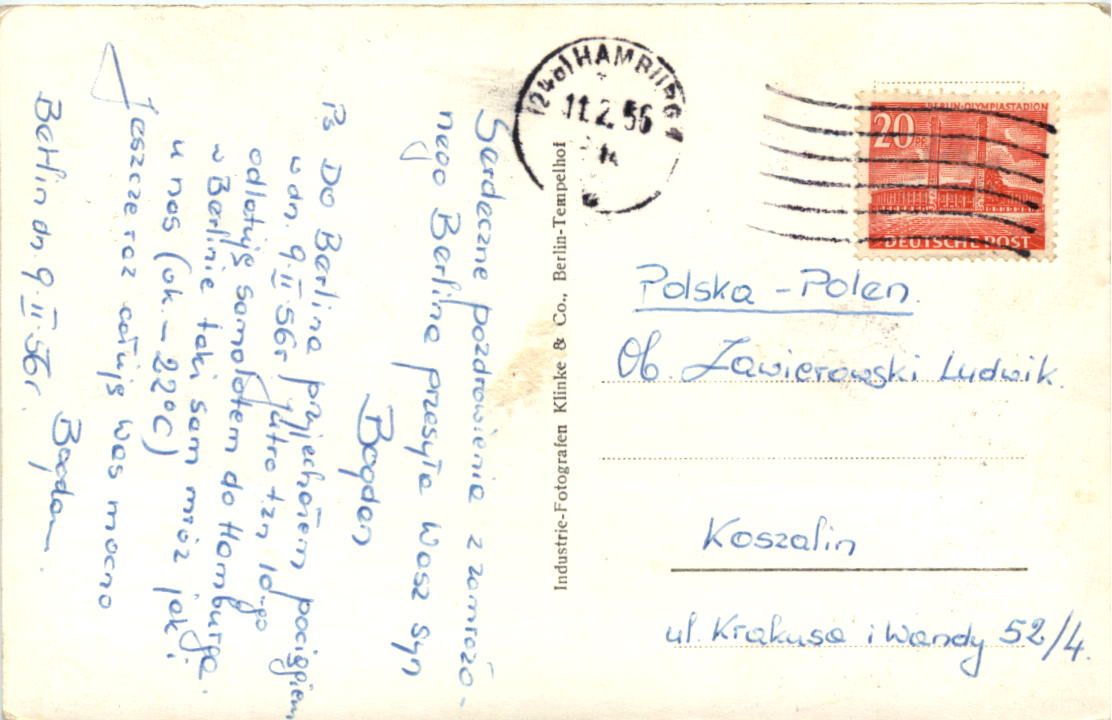 Serdeczne pozdrowienia z zamrożo-
nego Berlina przesyła Wasz Syn
Bogdan
Ps Do Berlina przyjechałem pociągiem
w dn. 9.II.56r jutro tzn 10-go
odlatuję samolotem do Hamburga.
w Berlinie taki sam mróz jak i
u nas (ok. -22°C)
Jeszcze raz całuję Was mocno
Bogdan.
Berlin dn. 9.II.56r.
Industrie-Fotografen Klinke & Co., Berlin-Tempelhof
HAMBURG 1
11.2.56
BERLIN-OLYMPIASTADION
20 PF
DEUTSCHE POST
Polska - Polen.
Ob. Zawierowski Ludwik.
Koszalin
ul. Krakusa i Wandy 52/4.